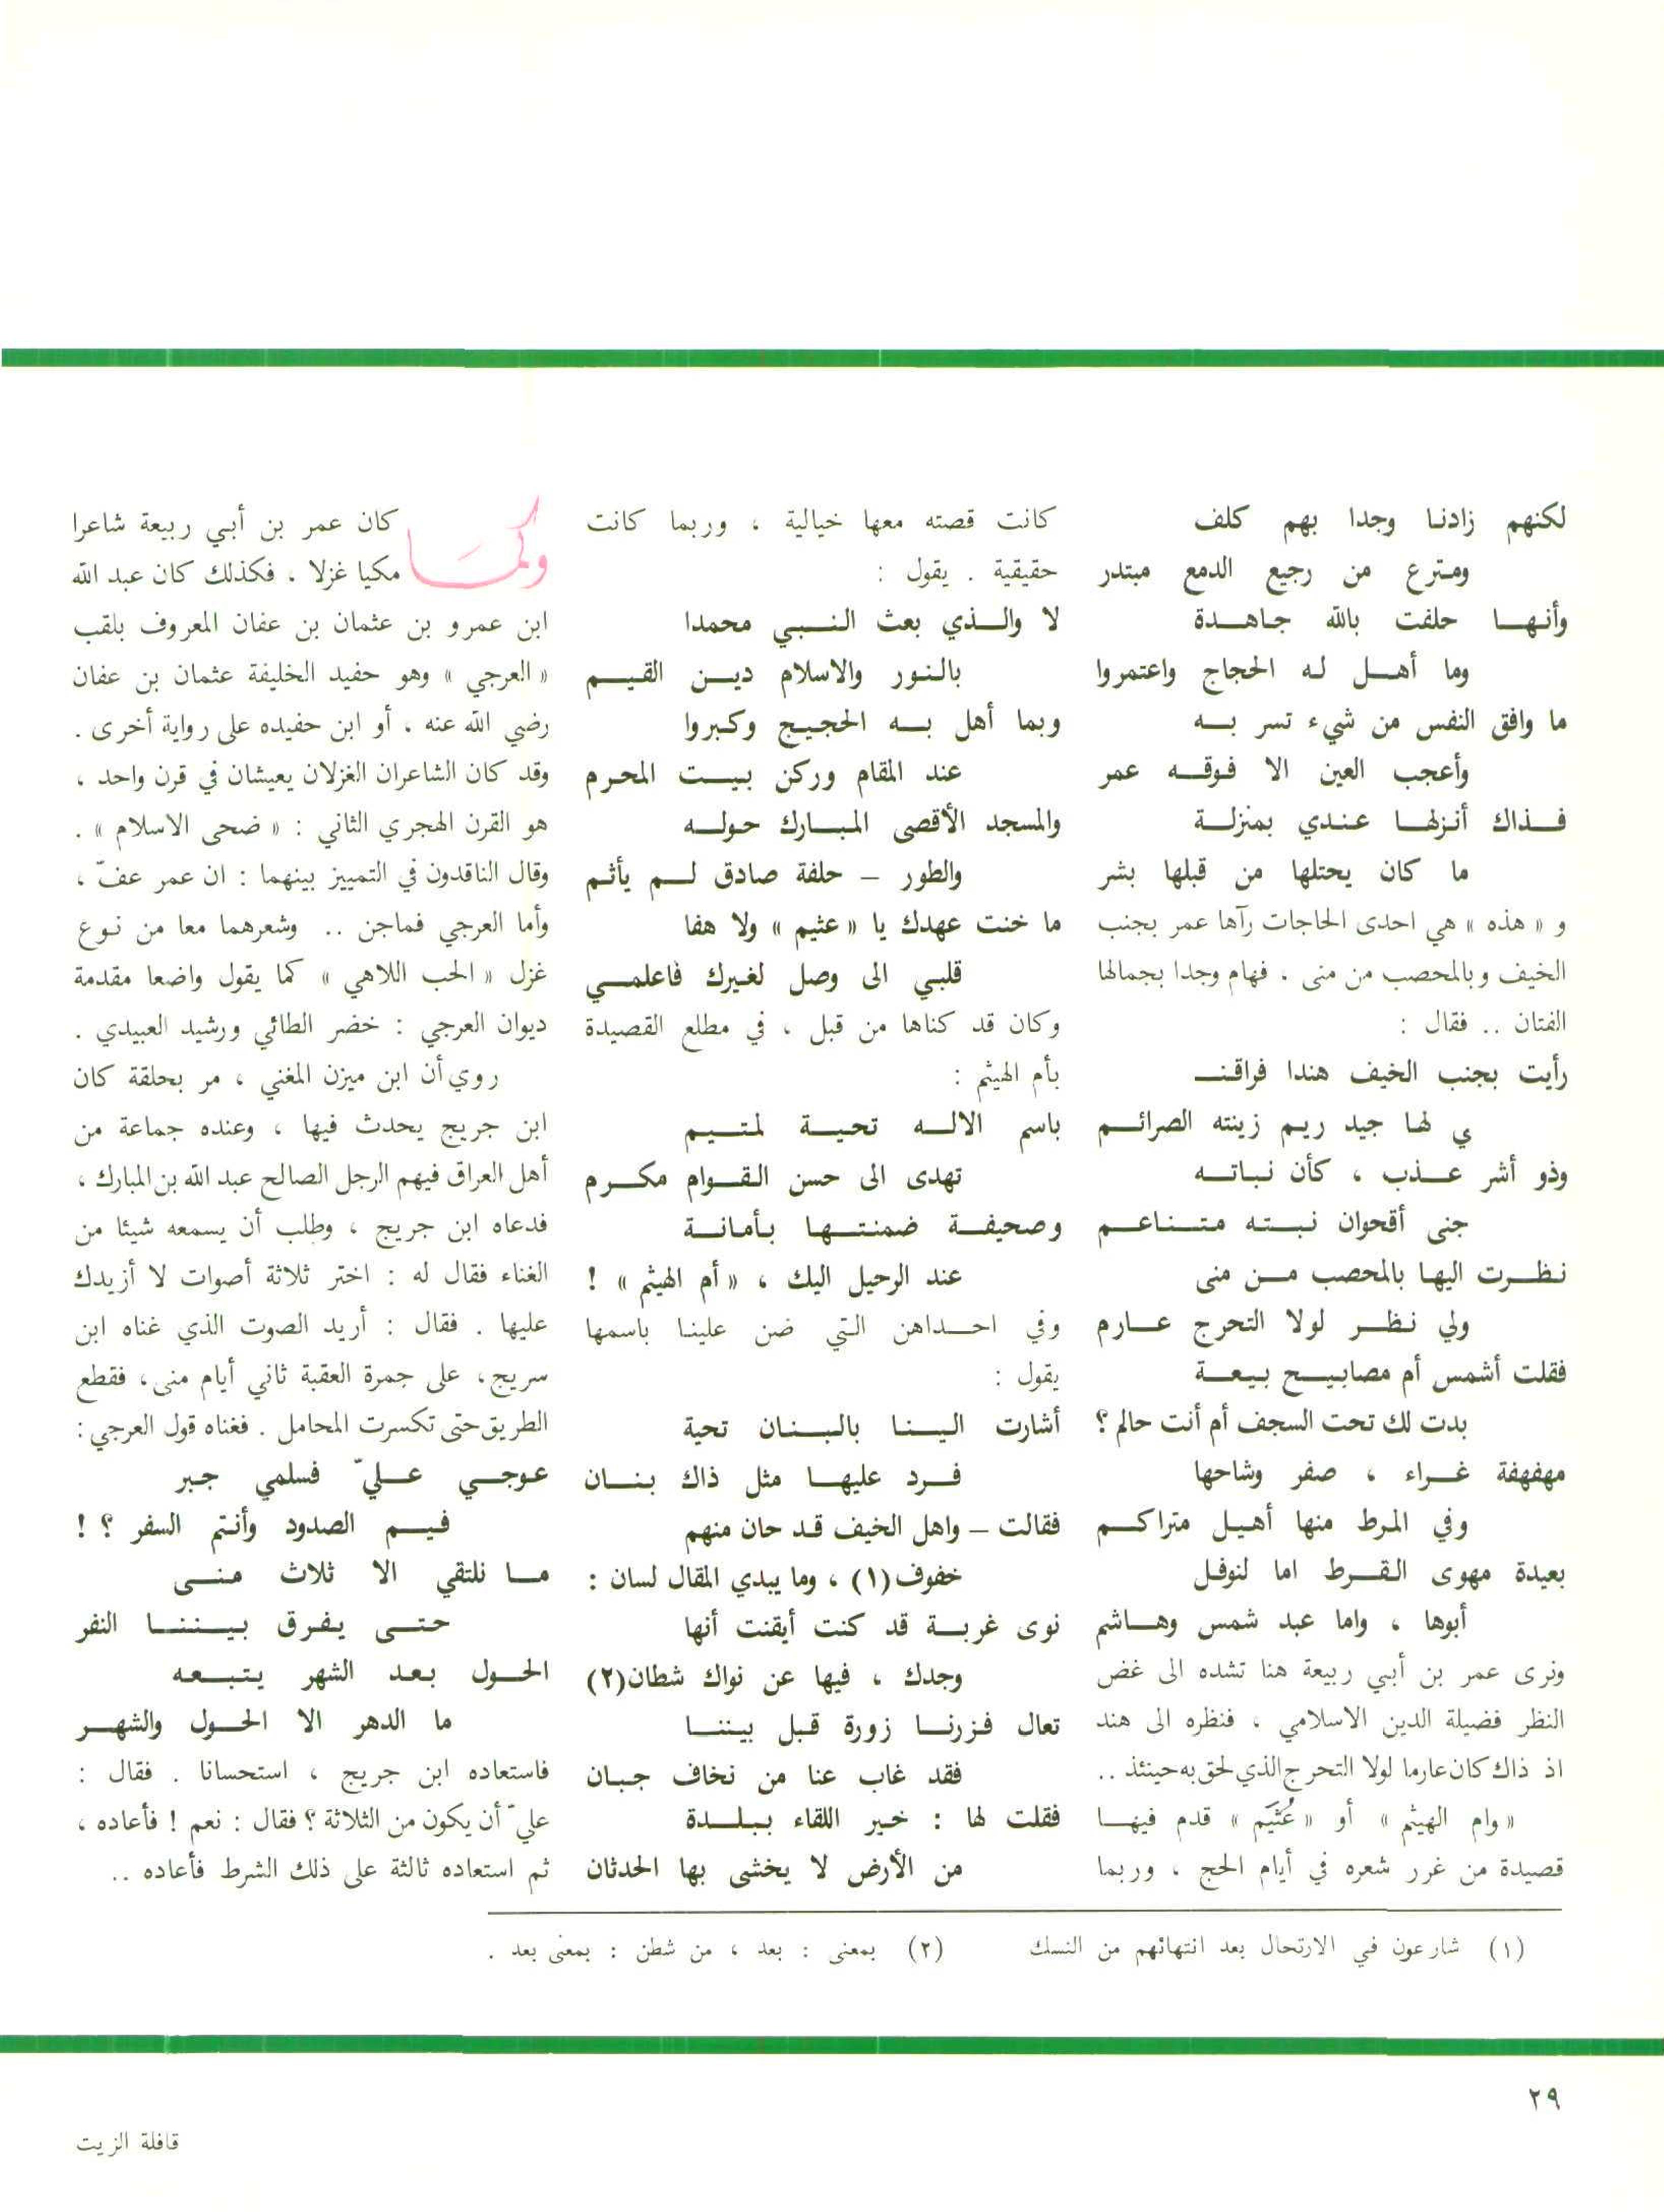 لكنهم زادنا وجدا بهم كلف
ومترع من رجيع الدمع مبتدر
وأنها حلفت بالله جاهدة
وما أهل له الحجاج واعتمروا
ما وافق النفس من شيء تسر به
وأعجب العين الا فوقه عمر
فذاك أنزلها عندي بمنزلة
ما كان يحتلها من قبلها بشر
و « هذه » هي احدى الحاجات رآها عمر بجنب
الخيف وبالمحصب من منى ، فهام وجدا بجمالها
الفتان .. فقال :
رأيت بجنب الخيف هندا فراقنـ
ي لها جيد ريم زينته الصرائم
وذو أشر عذب ، كأن نباته
جنى أقحوان نبته متناعم
نظرت اليها بالمحصب من منى
ولي نظر لولا التحرج عارم
فقلت أشمس أم مصابيح بيعة
بدت لك تحت السجف أم أنت حالم ؟
مهفهفة غراء ، صفر وشاحها
وفي المرط منها أهيل متراكم
بعيدة مهوى القرط اما لنوفل
أبوها ، واما عبد شمس وهاشم
ونرى عمر بن أبي ربيعة هنا تشده الى غض
النظر فضيلة الدين الاسلامي ، فنظره الى هند
اذ ذاك كان عارما لولا التحرج الذي لحق به حينئذ ..
« وام الهيثم » أو « عُثَيَم » قدم فيها
قصيدة من غرر شعره في أيام الحج ، وربما
كانت قصته معها خيالية ، وربما كانت
حقيقية . يقول :
لا والذي بعث النبي محمدا
بالنور والاسلام دين القيم
وبما أهل به الحجيج وكبروا
عند المقام وركن بيت المحرم
والمسجد الأقصى المبارك حوله
والطور – حلفة صادق لم يأثم
ما خنت عهدك يا « عثيم » ولا هفا
قلبي الى وصل لغيرك فاعلمي
وكان قد كناها من قبل ، في مطلع القصيدة
بأم الهيثم :
باسم الاله تحية لمتيم
تهدى الى حسن القوام مكرم
وصحيفة ضمنتها بأمانة
عند الرحيل اليك ، « أم الهيثم » !
وفي احداهن التي ضن علينا باسمها
يقول :
أشارت الينا بالبنان تحية
فرد عليها مثل ذاك بنان
فقالت – واهل الخيف قد حان منهم
خفوف (١) ، وما يبدي المقال لسان :
نوى غربة قد كنت أيقنت أنها
وجدك ، فيها عن نواك شطان (٢)
تعال فزرنا زورة قبل بيننا
فقد غاب عنا من نخاف جبان
فقلت لها : خير اللقاء ببلدة
من الأرض لا يخشى بها الحدثان
وكما كان عمر بن أبي ربيعة شاعرا
مكيا غزلا ، فكذلك كان عبد الله
ابن عمرو بن عثمان بن عفان المعروف بلقب
« العرجي » وهو حفيد الخليفة عثمان بن عفان
رضي الله عنه ، أو ابن حفيده على رواية أخرى .
وقد كان الشاعران الغزلان يعيشان في قرن واحد ،
هو القرن الهجري الثاني : « ضحى الاسلام » .
وقال الناقدون في التمييز بينهما : ان عمر عفّ ،
وأما العرجي فماجن .. وشعرهما معا من نوع
غزل « الحب اللاهي » كما يقول واضعا مقدمة
ديوان العرجي : خضر الطائي ورشيد العبيدي .
روي أن ابن ميزن المغني ، مر بحلقة كان
ابن جريج يحدث فيها ، وعنده جماعة من
أهل العراق فيهم الرجل الصالح عبد الله بن المبارك ،
فدعاه ابن جريج ، وطلب أن يسمعه شيئا من
الغناء فقال له : اختر ثلاثة أصوات لا أزيدك
عليها . فقال : أريد الصوت الذي غناه ابن
سريج ، على جمرة العقبة ثاني أيام منى ، فقطع
الطريق حتى تكسرت المحامل . فغناه قول العرجي :
عوجي عليّ فسلمي جبر
فيم الصدود وأنتم السفر ؟ !
ما نلتقي الا ثلاث منى
حتى يفرق بيننا النفر
الحول بعد الشهر يتبعه
ما الدهر الا الحول والشهر
فاستعاده ابن جريج ، استحسانا . فقال :
عليّ أن يكون من الثلاثة ؟ فقال : نعم ! فأعاده ،
ثم استعاده ثالثة على ذلك الشرط فأعاده ..
(١) شارعون في الارتحال بعد انتهائهم من النسك (٢) بمعنى : بعد ، من شطن : بمعنى بعد .
٢٩
قافلة الزيت